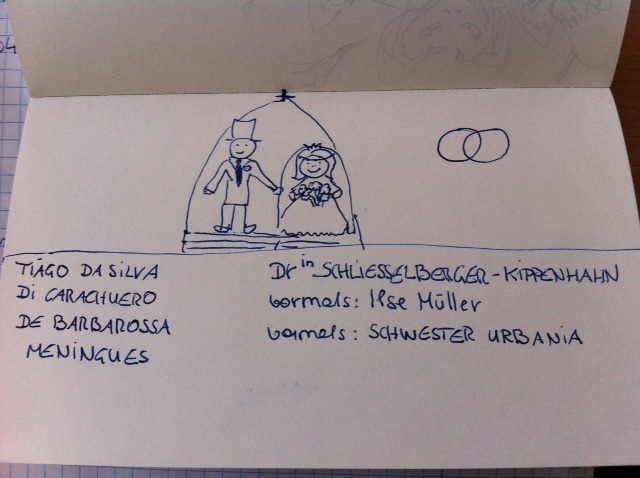 TIAGO DA SILVA
DI CARACHUERO
DE BARBAROSSA
MENINGUES
Dr in SCHLIESSELBERGER-KIPPENHAHN
vormals: Ilse Müller
vormals: SCHWESTER URBANIA